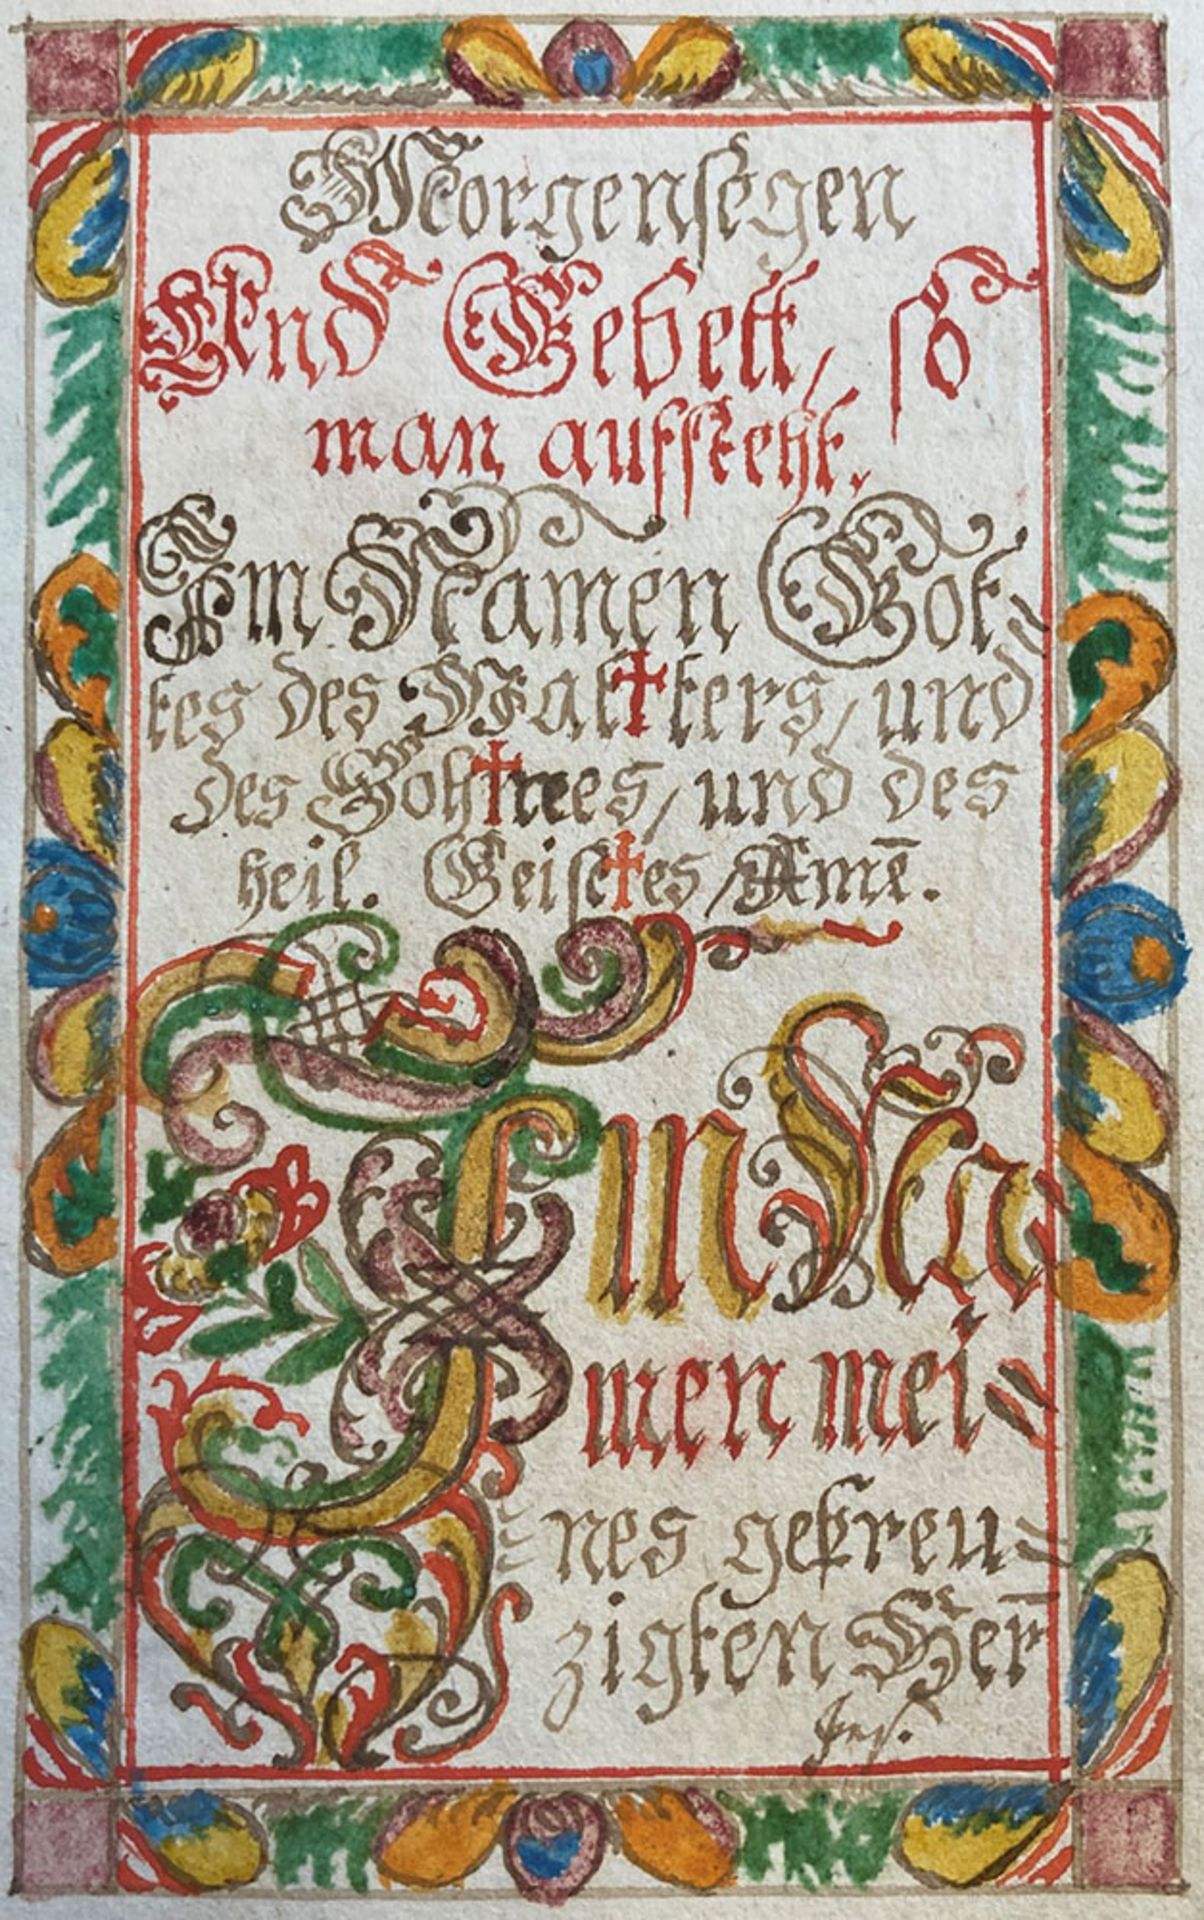 Morgensegen
Und Gebett, so
man auffsteht.
Im Namen Got-
tes des Vat✝ters, und
des Soh✝nes, und des
heil. Geist✝es, Amē.
Im Na-
men mei-
nes gekreu-
zigten Herr̄
Jes.